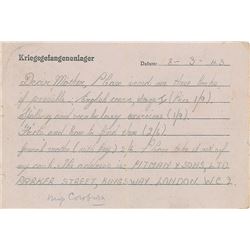 Kriegsgefangenenlager Datum: 2 - 3 - 43
Dear Mother, Please send me three books,
if possible :- English course, stage (Pen 1/9).
Spelling and vocabulary exercises (1/9).
Facts and how to find them (2/6).
2/6. Please take it out of
my credit. The address is: PITMAN & SONS, LTD
PARKER STREET, KINGSWAY, LONDON. W.C.2.